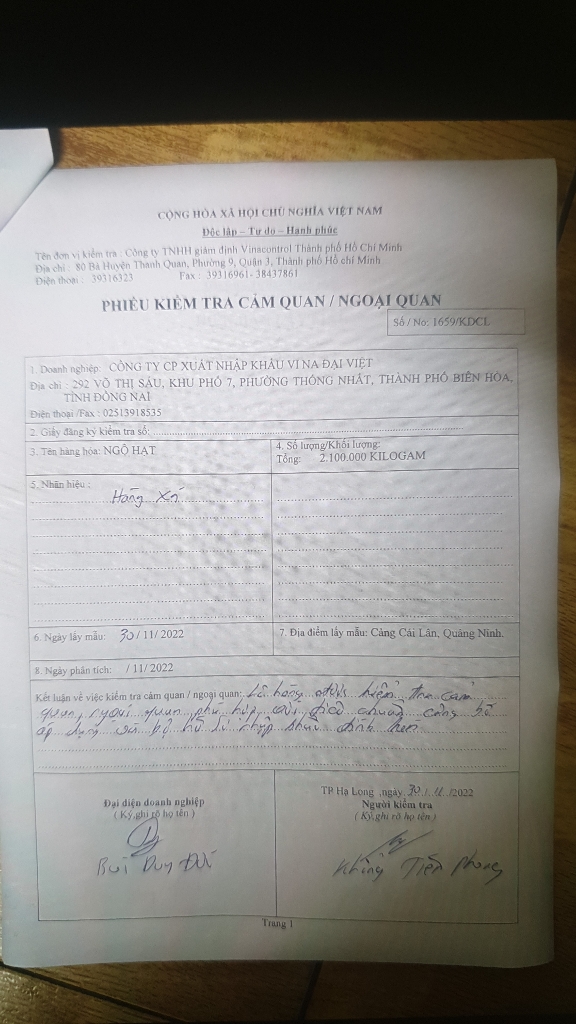 CỘNG HÒA XÃ HỘI CHỦ NGHĨA VIỆT NAM
Độc lập – Tự do – Hạnh phúc
Tên đơn vị kiểm tra : Công ty TNHH giám định Vinacontrol Thành phố Hồ Chí Minh
Địa chỉ : 80 Bà Huyện Thanh Quan, Phường 9, Quận 3, Thành phố Hồ Chí Minh
Điện thoại : 39316323 Fax : 39316961- 38437861
PHIẾU KIỂM TRA CẢM QUAN / NGOẠI QUAN
Số / No: 1659/KDCL
1. Doanh nghiệp: CÔNG TY CP XUẤT NHẬP KHẨU VI NA ĐẠI VIỆT
Địa chỉ : 292 VÕ THỊ SÁU, KHU PHỐ 7, PHƯỜNG THỐNG NHẤT, THÀNH PHỐ BIÊN HÒA,
TỈNH ĐỒNG NAI
Điện thoại /Fax : 02513918535
2. Giấy đăng ký kiểm tra số:
3. Tên hàng hóa: NGÔ HẠT
4. Số lượng/Khối lượng:
Tổng: 2.100.000 KILOGAM
5. Nhãn hiệu :
Hàng Xá
6. Ngày lấy mẫu: 30/ 11/ 2022
7. Địa điểm lấy mẫu: Cảng Cái Lân, Quảng Ninh.
8. Ngày phân tích: / 11/ 2022
Kết luận về việc kiểm tra cảm quan / ngoại quan: Lô hàng được kiểm tra cảm
quan, ngoại quan phù hợp với tiêu chuẩn công bố
áp dụng và bộ hồ sơ nhập khẩu đính kèm
Đại diện doanh nghiệp
( Ký,ghi rõ họ tên )
Bùi Duy
TP Hạ Long ,ngày 30 / 11 /2022
Người kiểm tra
( Ký,ghi rõ họ tên )
Khổng Tiến Phong
Trang 1